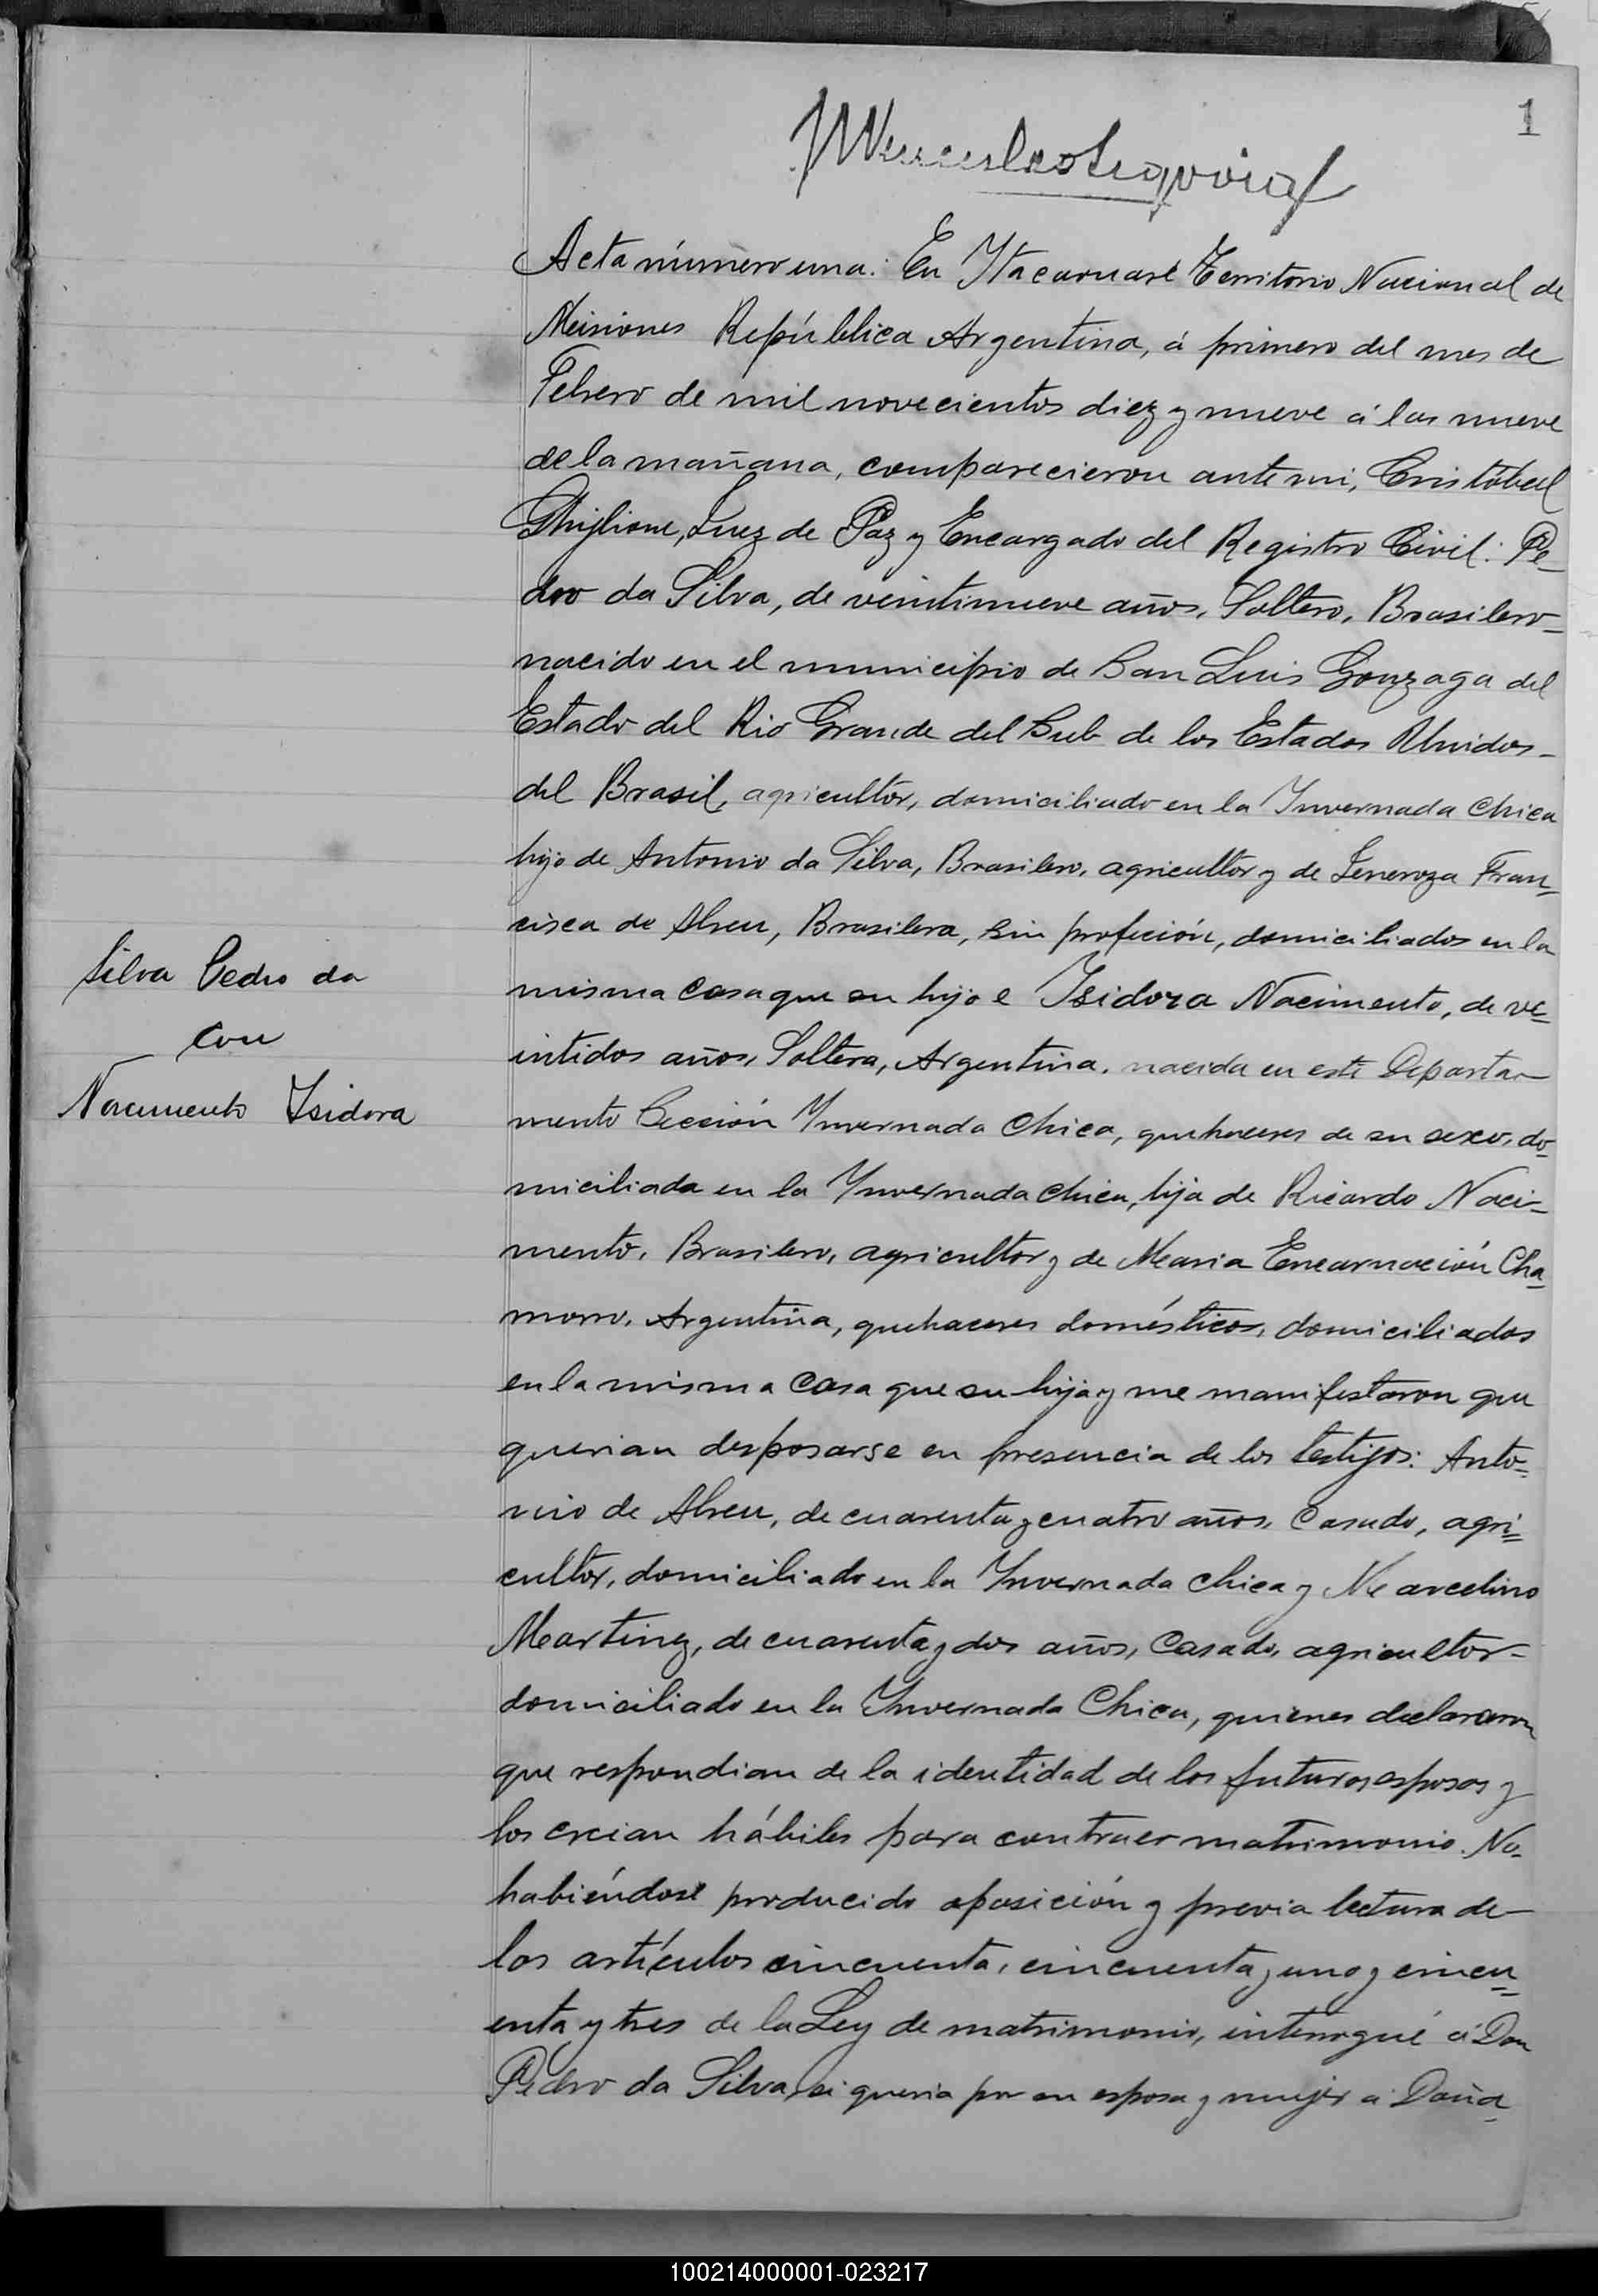 1
Acta número una: En Itacaruaré Territorio Nacional de
Misiones República Argentina, á primero del mes de
Febrero de mil novecientos diez y nueve á las nueve
de la mañana, comparecieron ante mi, Cristóbal
Ghiglione, Juez de Paz y Encargado del Registro Civil: Pe-
dro da Silva, de veintinueve años, Soltero, Brasilero-
nacido en el municipio de San Luis Gonzaga del
Estado del Rio Grande del Sub de los Estados Unidos-
del Brasil, agricultor, domiciliado en la Invernada Chica
hijo de Antonio da Silva, Brasilero, agricultor y de Generoza Fran=
cisca de Abreu, Brasilera, sin profeción, domiciliados en la
Silva Pedro da
con
Nacimento Isidora
misma casa que su hijo e Isidora Nacimento, de ve=
intidos años, Soltera, Argentina, nacida en este Departa-
mento Sección Invernada Chica, quehaceres de su sexo, do-
miciliada en la Invernada Chica, hija de Ricardo Naci=
mento, Brasilero, agricultor y de Maria Encarnación Cha=
morro, Argentina, quehaceres domésticos, domiciliados
en la misma casa que su hija y me manifestaron que
querian desposarse en presencia de los testigos: Anto=
nio de Abreu, de cuarenta y cuatro años, Casado, agri=
cultor, domiciliado en la Invernada Chica y Marcelino
Martinez, de cuarenta y dos años, Casado, agricultor-
domiciliado en la Invernada Chica, quienes declararon
que respondian de la identidad de los futuros esposos y
los creian hábiles para contraer matrimonio. No-
habiéndose producido oposición y previa lectura de-
los artículos cincuenta, cincuenta y uno y cincu=
enta y tres de la Ley de matrimonio, interrogué á Don
Pedro da Silva, si queria por su esposa y mujer á Doña
100214000001-023217